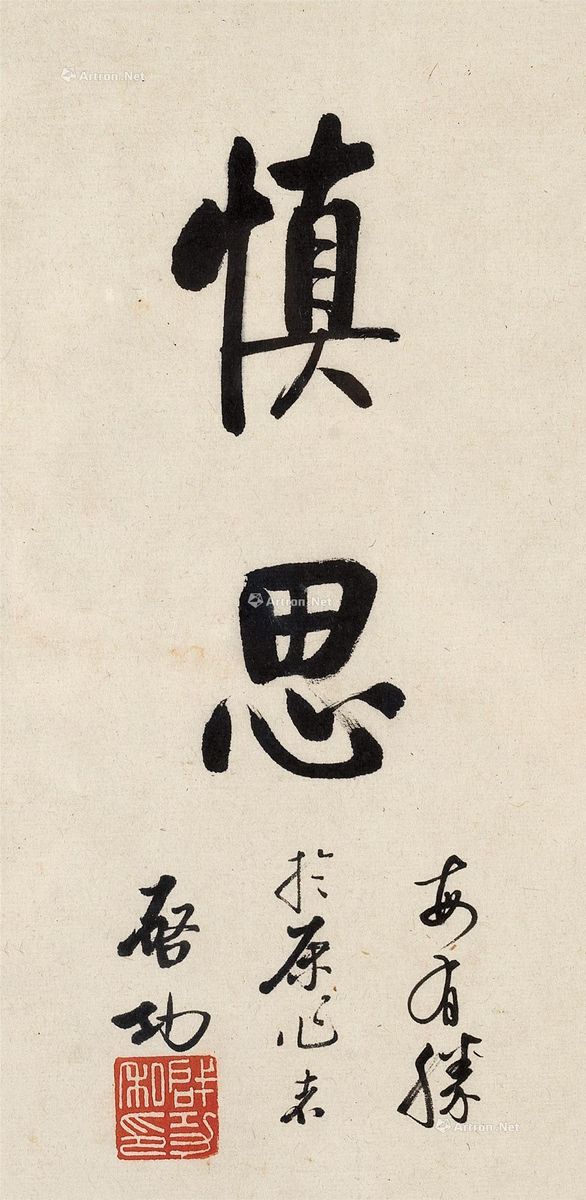 慎思
每有勝
於原作者
啓功
啟功私印
Artron.Net
Artron.Net
Artron.Net